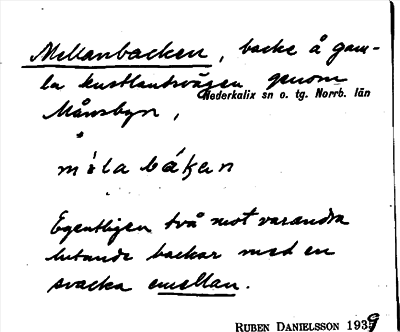 Mellanbacken, backe å gam-
la kustlandsvägen genom
Nederkalix sn o. tg. Norrb. län
Månsbyn,
mìla bákan
Egentligen två mot varandra
lutande backar med en
svacka emellan.
RUBEN DANIELSSON 1939